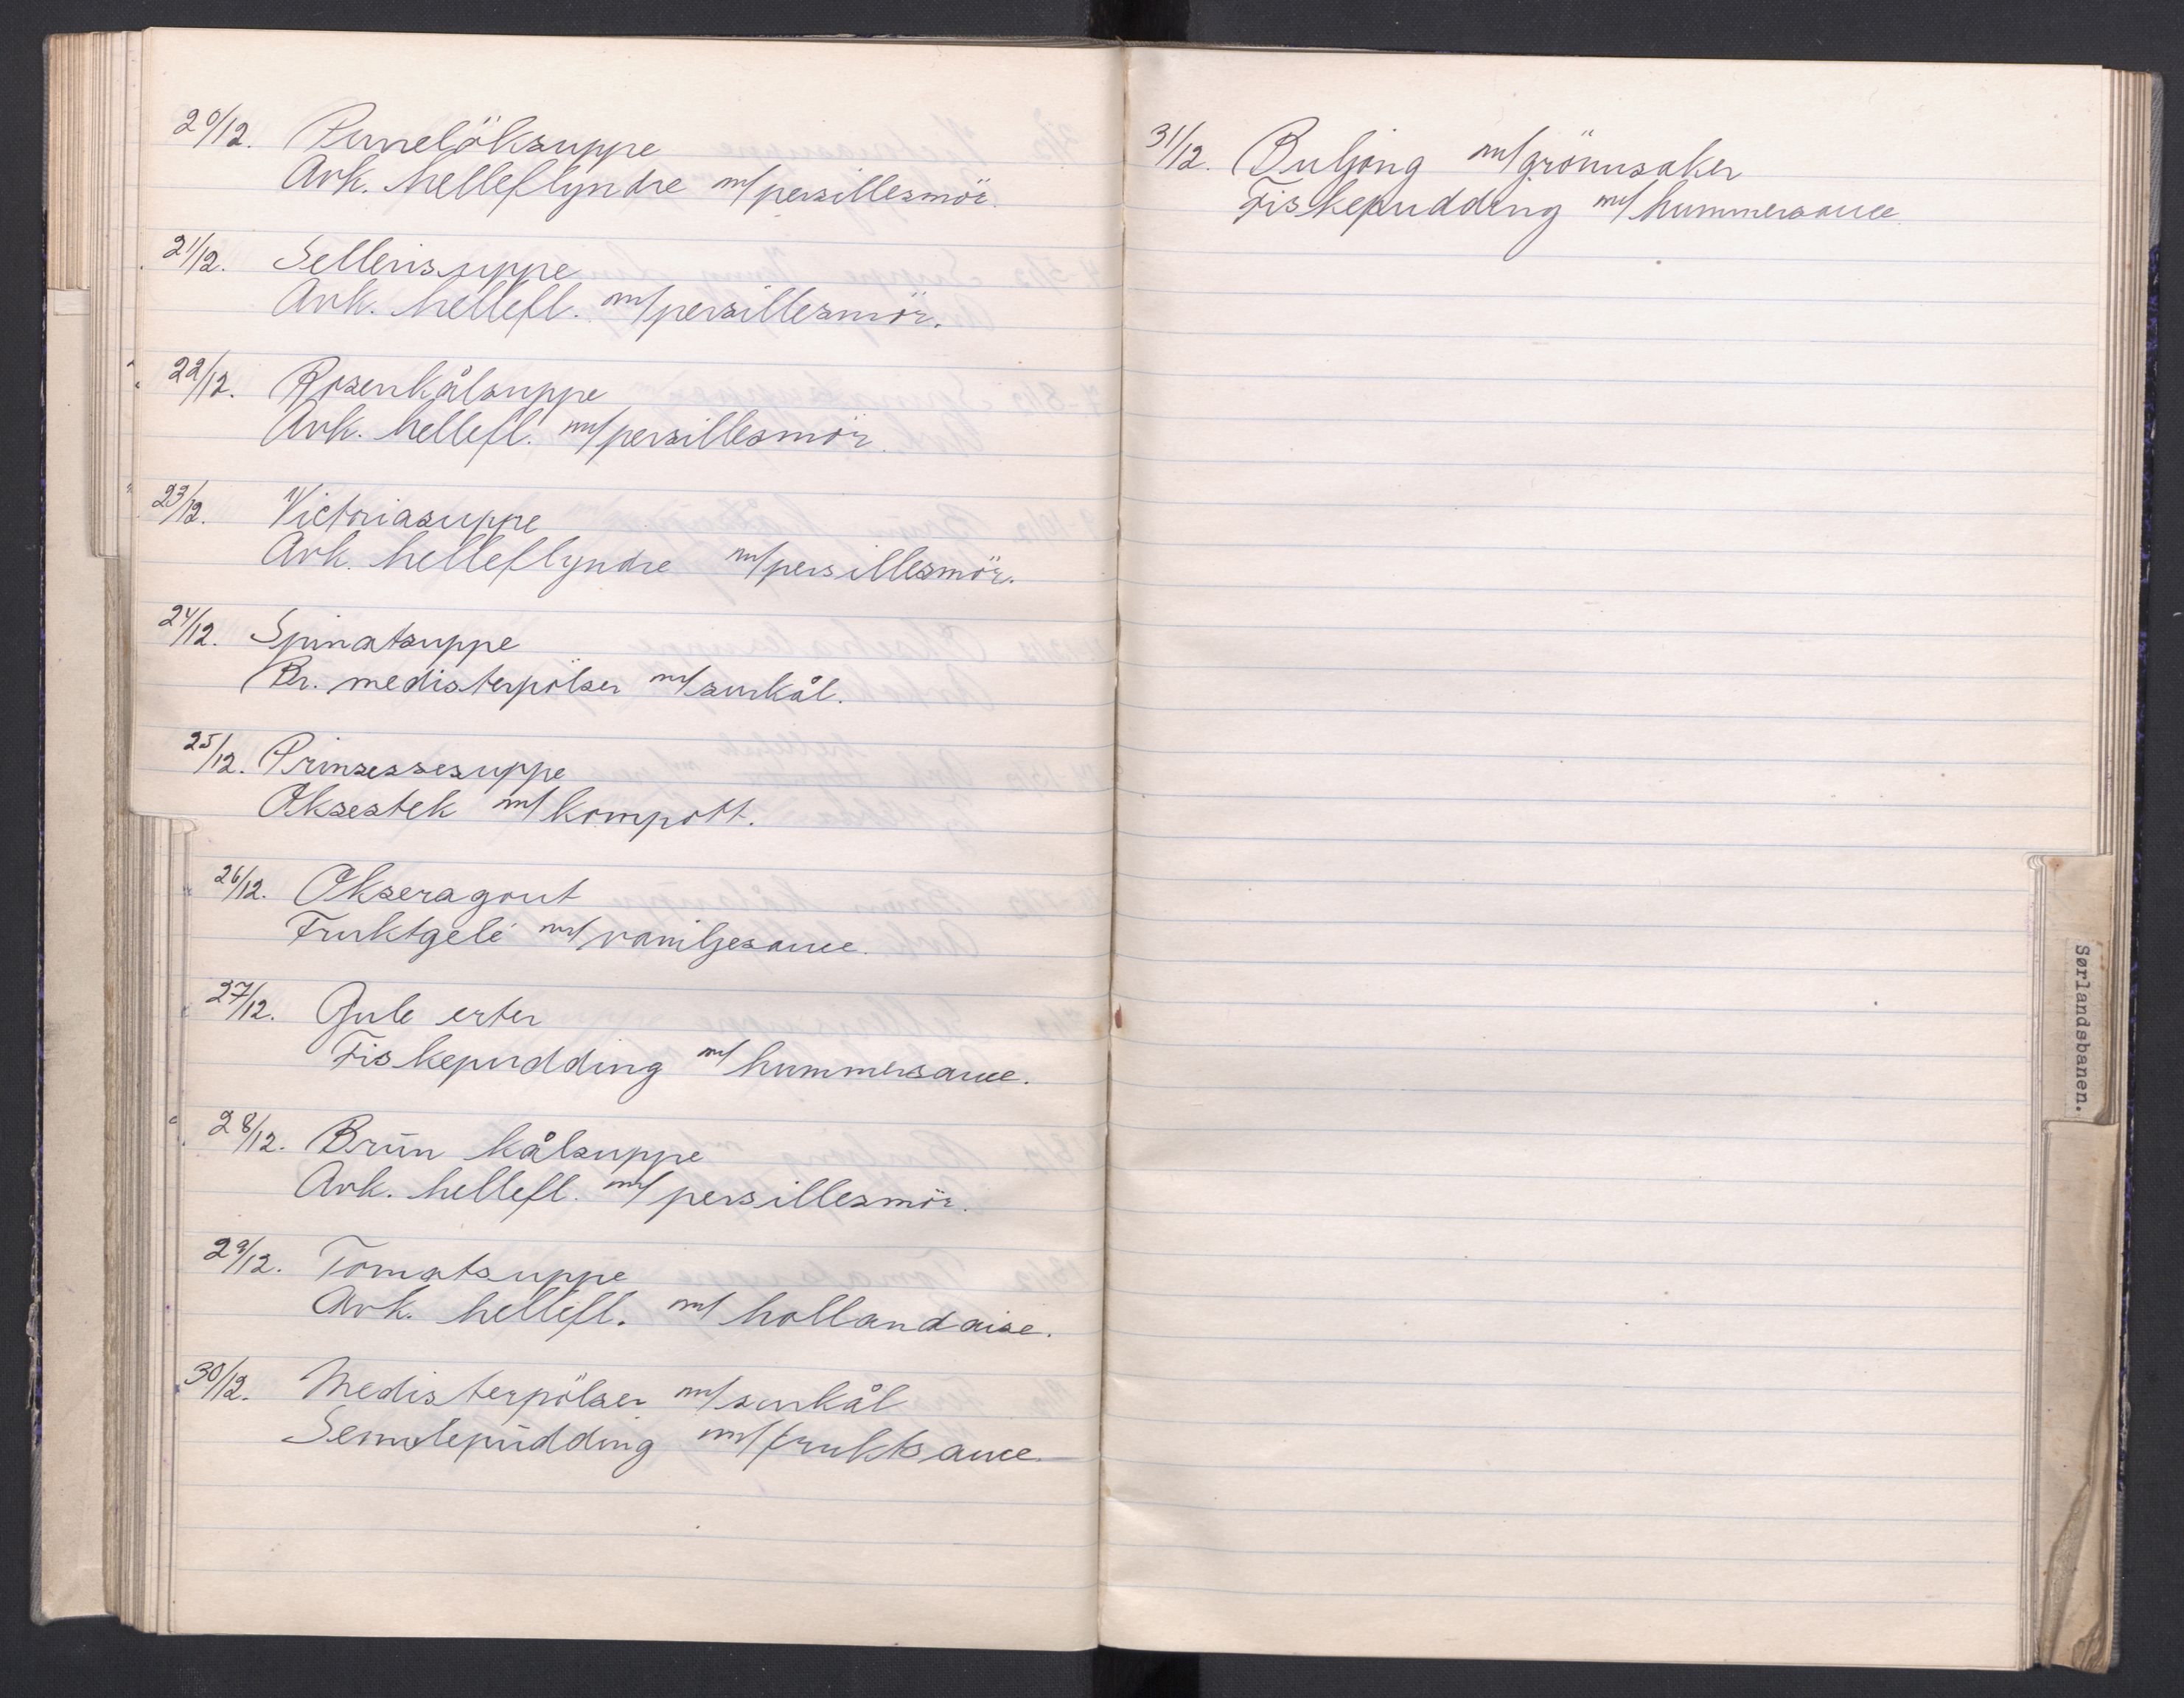 20/12. Purreløksuppe
Avk. helleflyndre m/persillesmör.
21/12. Sellerisuppe
Avk. hellefl. m/persillesmör.
22/12. Rosenkålsuppe
Avk. hellefl. m/persillesmör.
23/12. Victoriasuppe
Avk. helleflyndre m/persillesmör.
24/12. Spinatsuppe
Br. medisterpölser m/surkål.
25/12. Prinsessesuppe
Oksestek m/kompott.
26/12. Okseragout
Fruktgelé m/vaniljesauce.
27/12. Gule erter
Fiskepudding m/hummersauce.
28/12. Brun kålsuppe
Avk. hellefl. m/persillesmör.
29/12. Tomatsuppe
Avk. hellefl. m/hollandaise.
30/12. Medisterpölser m/surkål
Semulepudding m/fruktsauce.
31/12. Buljong m/grönnsaker
Fiskepudding m/hummersauce
Sørlandsbanen.